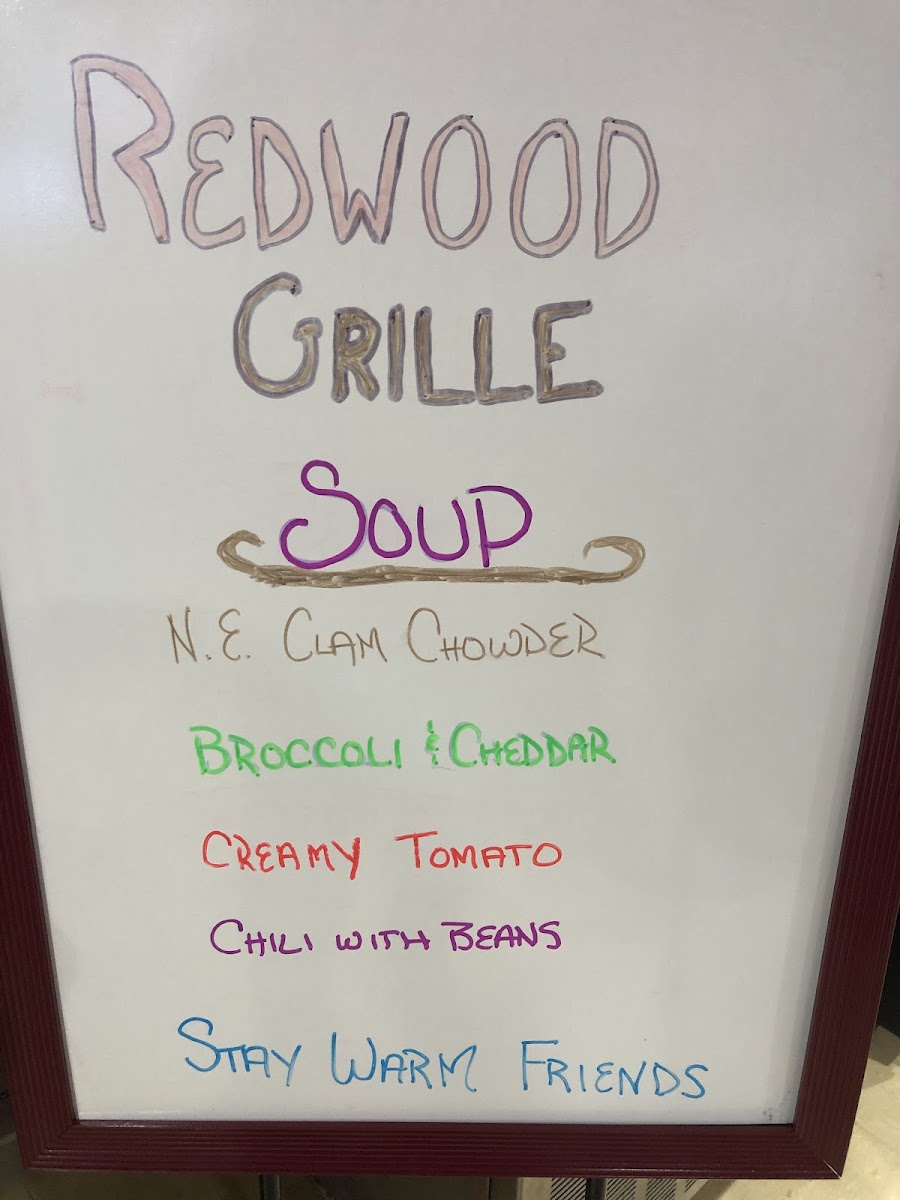 REDWOOD
GRILLE
SOUP
N.E. CLAM CHOWDER
BROCCOLI & CHEDDAR
CREAMY TOMATO
CHILI WITH BEANS
STAY WARM FRIENDS